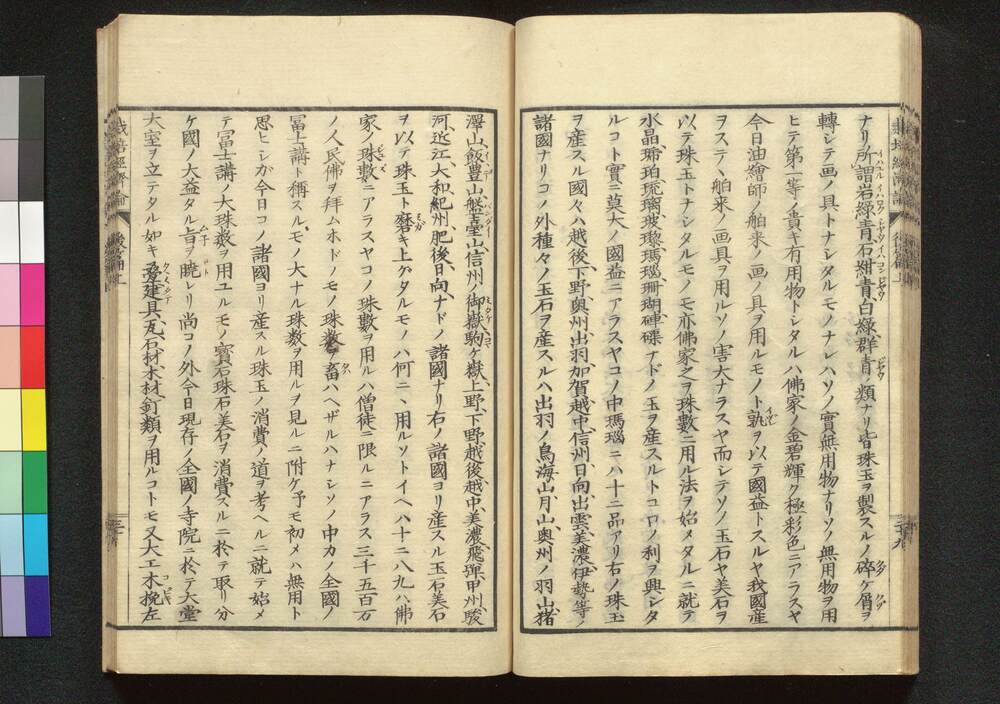 ナリ所謂岩緑青石紺青白緑群青ノ類ナリ皆珠玉ヲ製スルノ碎ケ屑ヲ
轉シテ画ノ具トナシタルモノナレハソノ實無用物ナリソノ無用物ヲ用
ヒテ第一等ノ貴キ有用物トシタルハ佛家ノ金碧輝ク極彩色ニアラスヤ
今日油繪師ノ舶来ノ画ノ具ヲ用ルモノト孰ヲ以テ國益トスルヤ我國産
ヲステヽ舶来ノ画具ヲ用ルソノ害大ナラスヤ而シテソノ玉石ヤ美石ヲ
以テ珠玉トナシタルモノモ亦佛家之ヲ珠數ニ用ル法ヲ始メタルニ就テ
水晶琥珀琉璃玻瓈瑪瑙珊瑚硨磲ナドノ玉ヲ産スルトコロノ利ヲ興シタ
ルコト實ニ莫大ノ國益ニアラスヤコノ中瑪瑙ニハ十二品アリ右ノ珠玉
ヲ産スル國々ハ越後下野奥州出羽加賀越中信州日向出雲美濃伊勢等ノ
諸國ナリコノ外種々ノ玉石ヲ産スルハ出羽ノ鳥海山月山奥州ノ羽山猪
澤山飯豊山磐臺山信州ノ御嶽駒ケ嶽上野下野越後越中美濃飛彈甲州駿
河近江大和紀州肥後日向ナドノ諸國ナリ右ノ諸國ヨリ産スル玉石美石
ヲ以テ珠玉ト磨キ上ゲタルモノハ何ニヽ用ルソトイヘハ十ニ八九ハ佛
家ノ珠數ニアラスヤコノ珠數ヲ用ルハ僧徒ニ限ルニアラス三千五百石
ノ人民佛ヲ拜ムホドノモノ珠數ノ畜ハヘザルハナシソノ中カノ全國ノ
冨士講ト稱スルモノ大ナル珠数ヲ用ルヲ見ルニ附ケ予モ初メハ無用ト
思ヒシガ今日コノ諸國ヨリ産スル珠玉ノ消費ノ道ヲ考ヘルニ就テ始メ
テ冨士講ノ大珠数ヲ用ユルモノ寶石珠石美石ヲ消費スルニ於テ取リ分
ケ國ノ大益タル旨ヲ曉レリ尚コノ外今日現存ノ全國ノ寺院ニ於テ大堂
大室ヲ立テタル如キ建具瓦石材木材釘類ヲ用ルコトモ又大工木挽左
栽培經濟論
後篇上
三十九